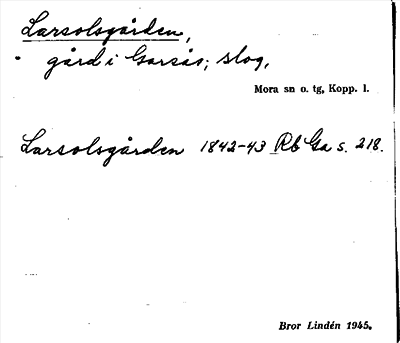 Larsolsgården,
gård i Garsås; slog.
Mora sn o. tg, Kopp. l.
Larsolsgården 1842-43 Rb Ga s. 218.
Bror Lindén 1945.